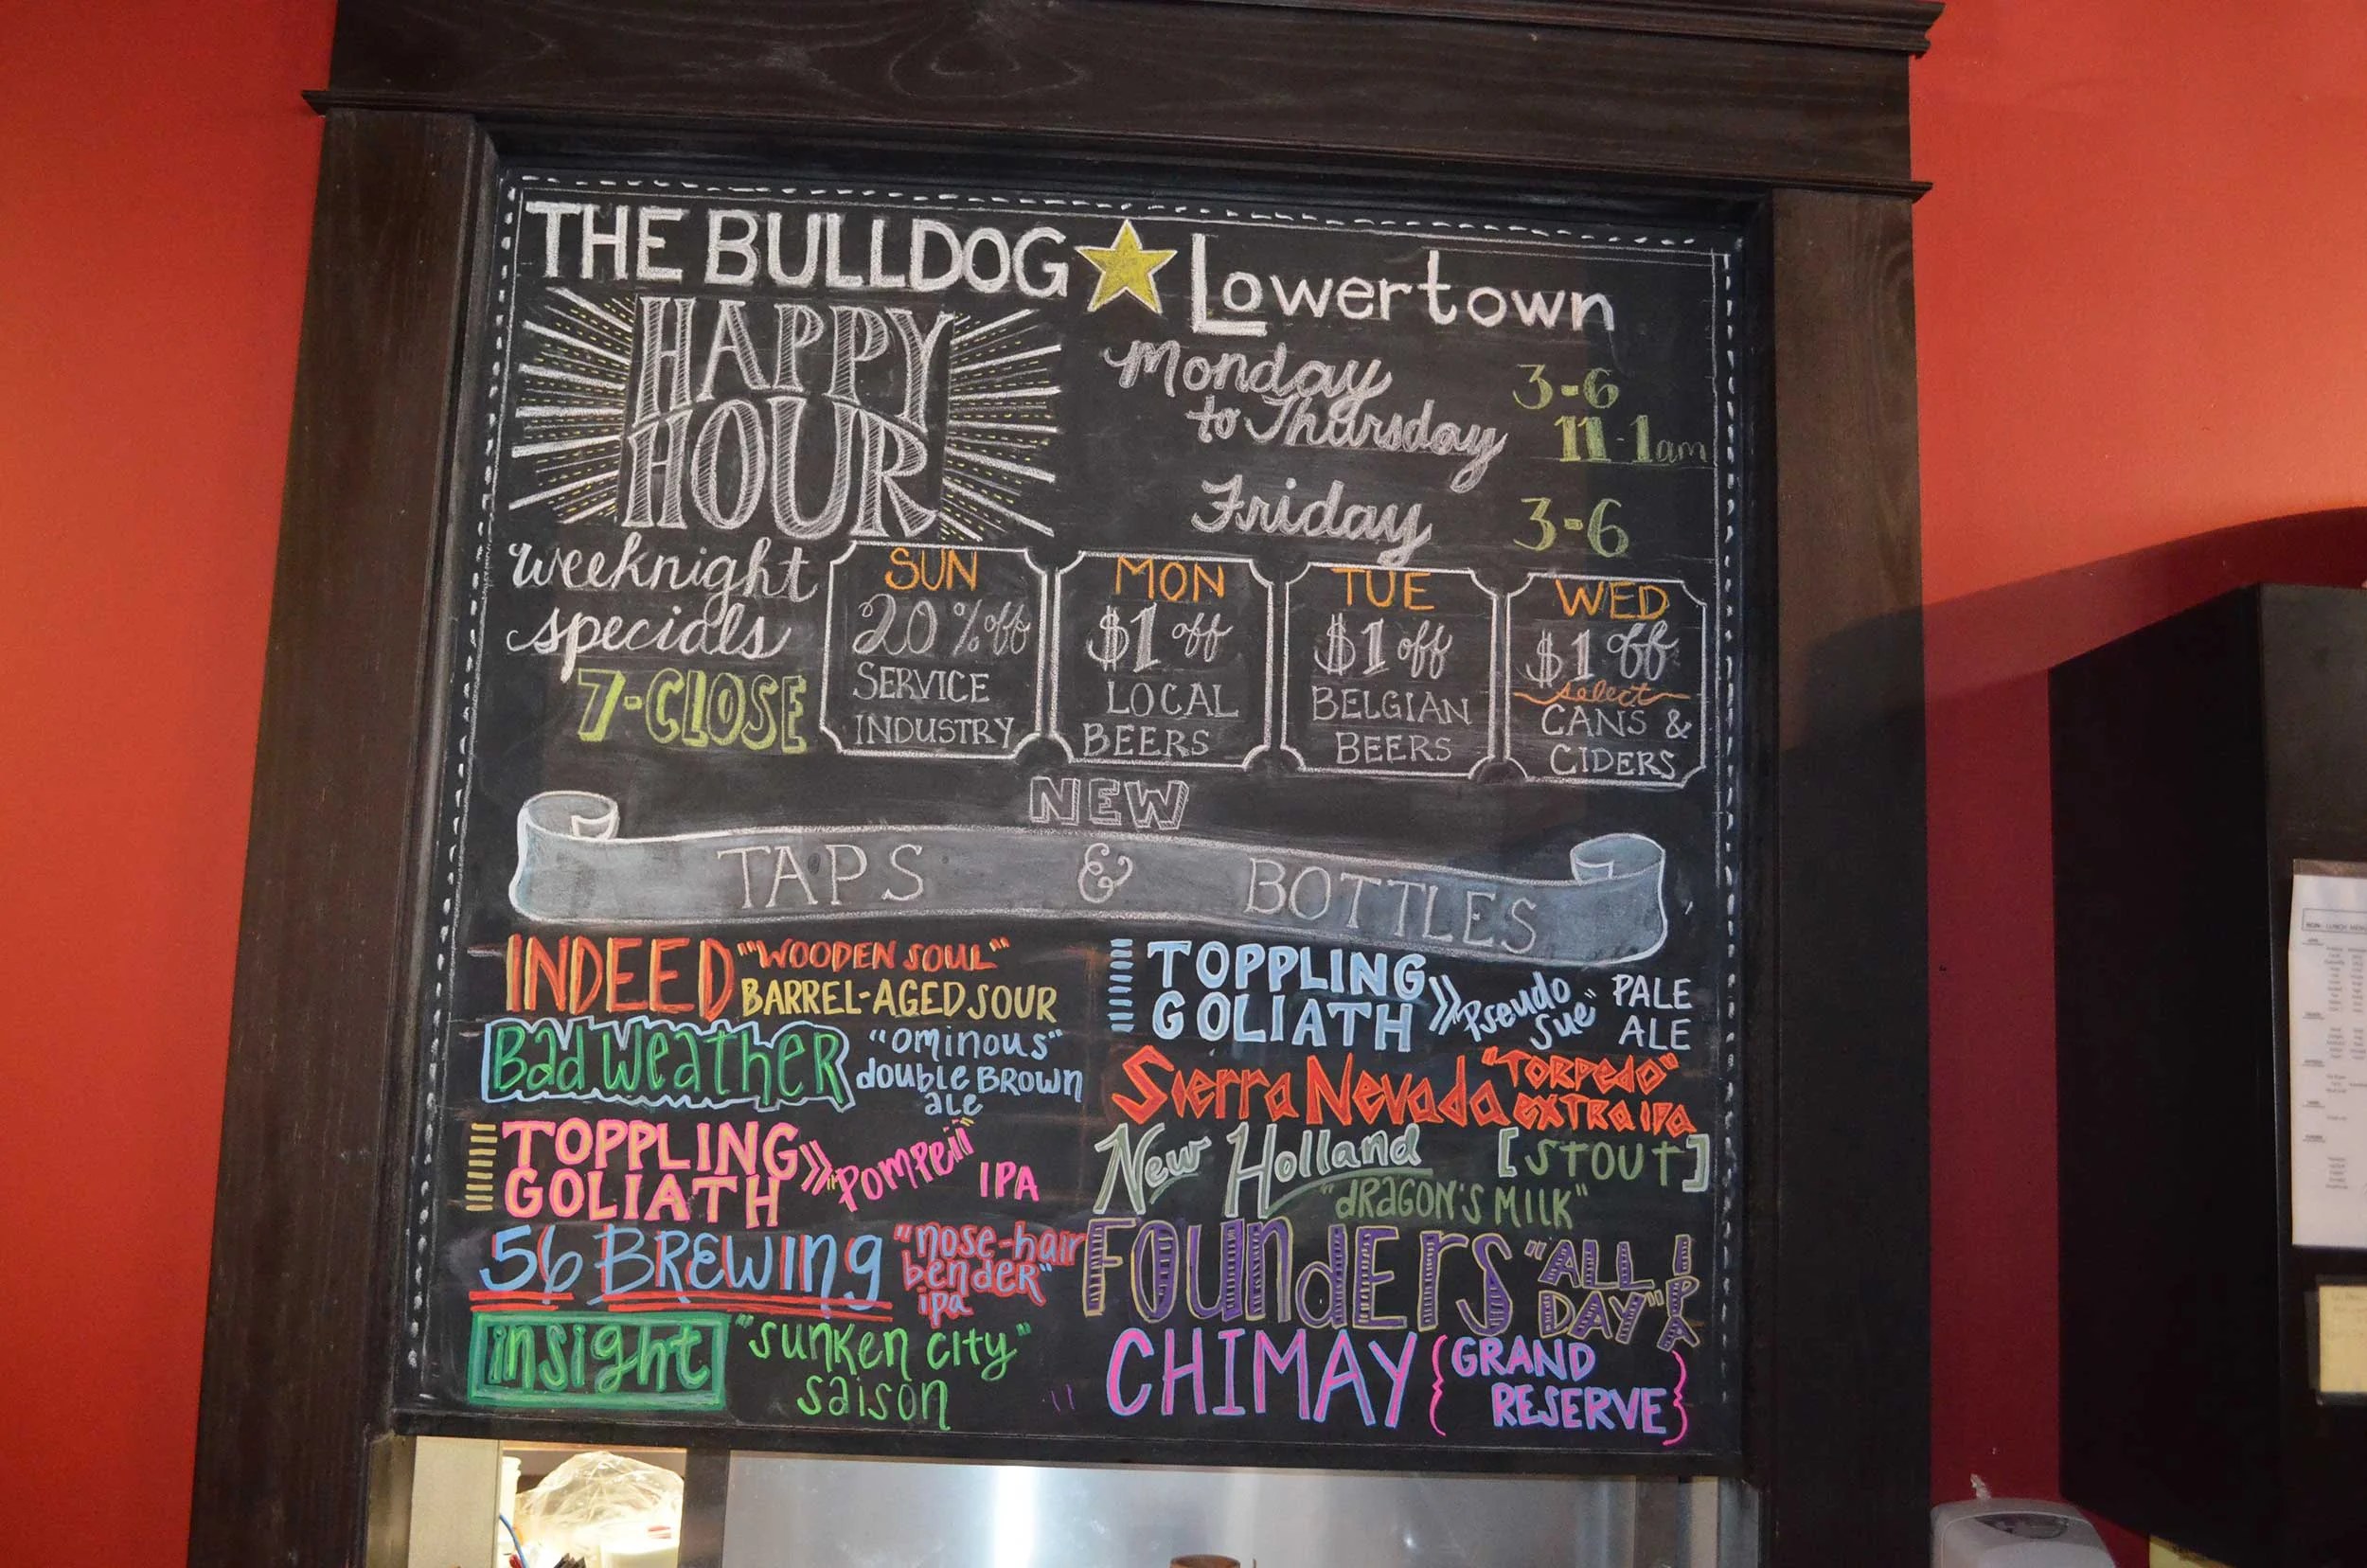 THE BULLDOG ★ Lowertown
HAPPY
HOUR
Monday
to Thursday
3-6
11-1am
Friday 3-6
weeknight
specials
7-CLOSE
SUN
20% off
SERVICE
INDUSTRY
MON
$1 off
LOCAL
BEERS
TUE
$1 off
BELGIAN
BEERS
WED
$1 off
select
CANS &
CIDERS
NEW
TAPS & BOTTLES
INDEED "WOODEN SOUL"
BARREL-AGED SOUR
Bad Weather "ominous"
double BROWN
ale
TOPPLING
GOLIATH "Pompeii" IPA
56 BREWING "nose-hair
bender"
ipa
insight "sunken city"
saison
TOPPLING
GOLIATH "Pseudo
Sue" PALE
ALE
Sierra Nevada "TORPEDO"
EXTRA IPA
New Holland [STOUT]
"dRAGON'S MILK"
Founders "ALL
DAY" IPA
CHIMAY {GRAND
RESERVE}